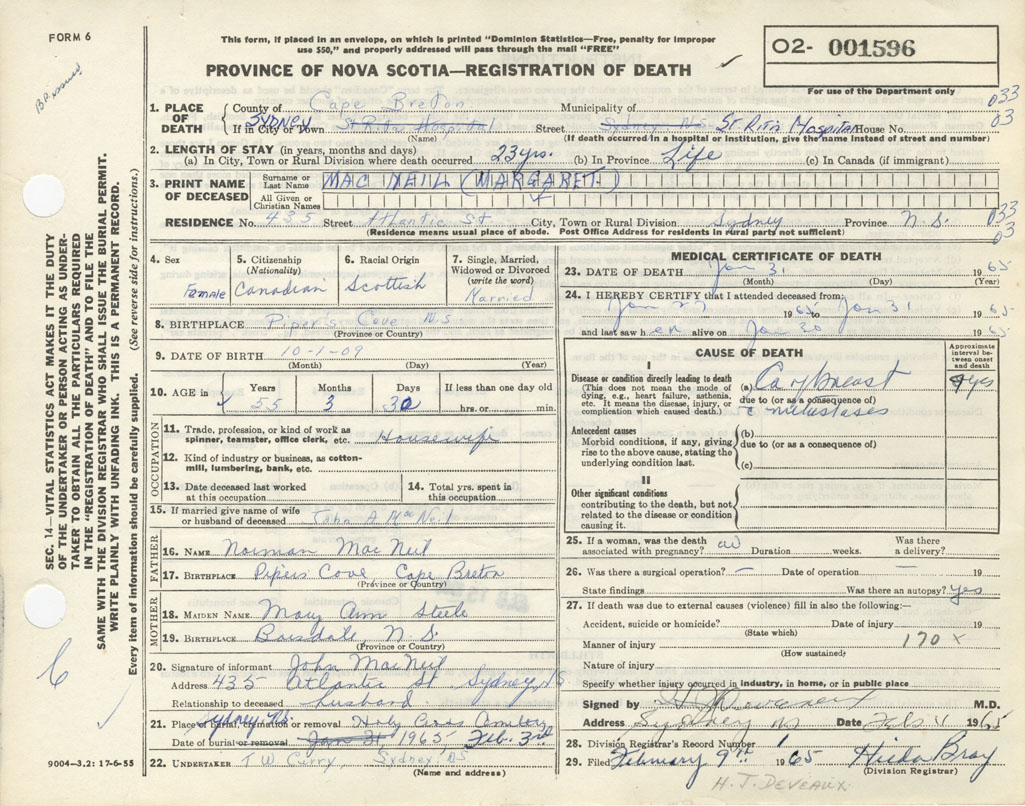 FORM 6
This form, if placed in an envelope, on which is printed "Dominion Statistics—Free, penalty for improper
use $50," and properly addressed will pass through the mail "FREE"
PROVINCE OF NOVA SCOTIA—REGISTRATION OF DEATH
O2- 001596
For use of the Department only
033
03
1. PLACE OF DEATH
County of Cape Breton Municipality of
SYDNEY
If in City or Town St Rita Hospital Street Sydney N.S. St Rita Hospital House No.
(Name) (If death occurred in a hospital or institution, give the name instead of street and number)
2. LENGTH OF STAY (in years, months and days)
(a) In City, Town or Rural Division where death occurred 23 yrs. (b) In Province Life (c) In Canada (if immigrant)
3. PRINT NAME OF DECEASED
Surname or Last Name MAC NEIL (MARGARET.)
All Given or Christian Names
RESIDENCE No. 435 Street Atlantic St City, Town or Rural Division Sydney Province N.S.
033
03
(Residence means usual place of abode. Post Office Address for residents in rural parts not sufficient)
4. Sex
Female
5. Citizenship (Nationality)
Canadian
6. Racial Origin
Scottish
7. Single, Married, Widowed or Divorced (write the word)
Married
8. BIRTHPLACE Piper's Cove N.S
(Province or Country)
9. DATE OF BIRTH 10-1-09
(Month) (Day) (Year)
10. AGE in Years Months Days If less than one day old
55 3 30 hrs. or min.
OCCUPATION
11. Trade, profession, or kind of work as
spinner, teamster, office clerk, etc. Housewife
12. Kind of industry or business, as cotton-
mill, lumbering, bank, etc.
13. Date deceased last worked
at this occupation
14. Total yrs. spent in
this occupation
15. If married give name of wife
or husband of deceased John A MacNeil
FATHER
16. NAME Norman MacNeil
17. BIRTHPLACE Pipers Cove Cape Breton
(Province or Country)
MOTHER
18. MAIDEN NAME Mary Ann Steele
19. BIRTHPLACE Boisdale, N.S.
(Province or Country)
20. Signature of informant John MacNeil
Address 435 Atlantic St Sydney, NS
Relationship to deceased husband
21. Place of burial, cremation or removal Sydney N.S. Holy Cross Cemetery
Date of burial or removal Jan 31 1965 Feb. 3rd
22. UNDERTAKER T W Curry, Sydney NS
(Name and address)
MEDICAL CERTIFICATE OF DEATH
23. DATE OF DEATH Jan 31 1965
(Month) (Day) (Year)
24. I HEREBY CERTIFY that I attended deceased from:
Jan 27 1965 to Jan 31 1965
and last saw her alive on Jan 30 1965
CAUSE OF DEATH
Approximate interval between onset and death
I
Disease or condition directly leading to death
(This does not mean the mode of
dying, e.g., heart failure, asthenia,
etc. It means the disease, injury, or
complication which caused death.)
(a) Ca of breast
due to (or as a consequence of)
c metastases
Antecedent causes
Morbid conditions, if any, giving
rise to the above cause, stating the
underlying condition last.
(b)
due to (or as a consequence of)
(c)
II
Other significant conditions
contributing to the death, but not
related to the disease or condition
causing it.
25. If a woman, was the death
associated with pregnancy? Duration weeks. Was there a delivery?
26. Was there a surgical operation? — Date of operation — 19
State findings Was there an autopsy? yes
27. If death was due to external causes (violence) fill in also the following:—
Accident, suicide or homicide? Date of injury 19
(State which)
Manner of injury 170 x
(How sustained)
Nature of injury
Specify whether injury occurred in industry, in home, or in public place
Signed by M.D.
Address Sydney NS Date Feb 1 1965
28. Division Registrar's Record Number 1
29. Filed February 9th 1965 Hilda Bray
(Division Registrar)
H. J. DEVEAUX
SEC. 14—VITAL STATISTICS ACT MAKES IT THE DUTY
OF THE UNDERTAKER OR PERSON ACTING AS UNDER-
TAKER TO OBTAIN ALL THE PARTICULARS REQUIRED
IN THE "REGISTRATION OF DEATH" AND TO FILE THE
SAME WITH THE DIVISION REGISTRAR WHO SHALL ISSUE THE BURIAL PERMIT.
WRITE PLAINLY WITH UNFADING INK. THIS IS A PERMANENT RECORD.
Every item of information should be carefully supplied. (See reverse side for instructions.)
9004-3.2: 17-6-55